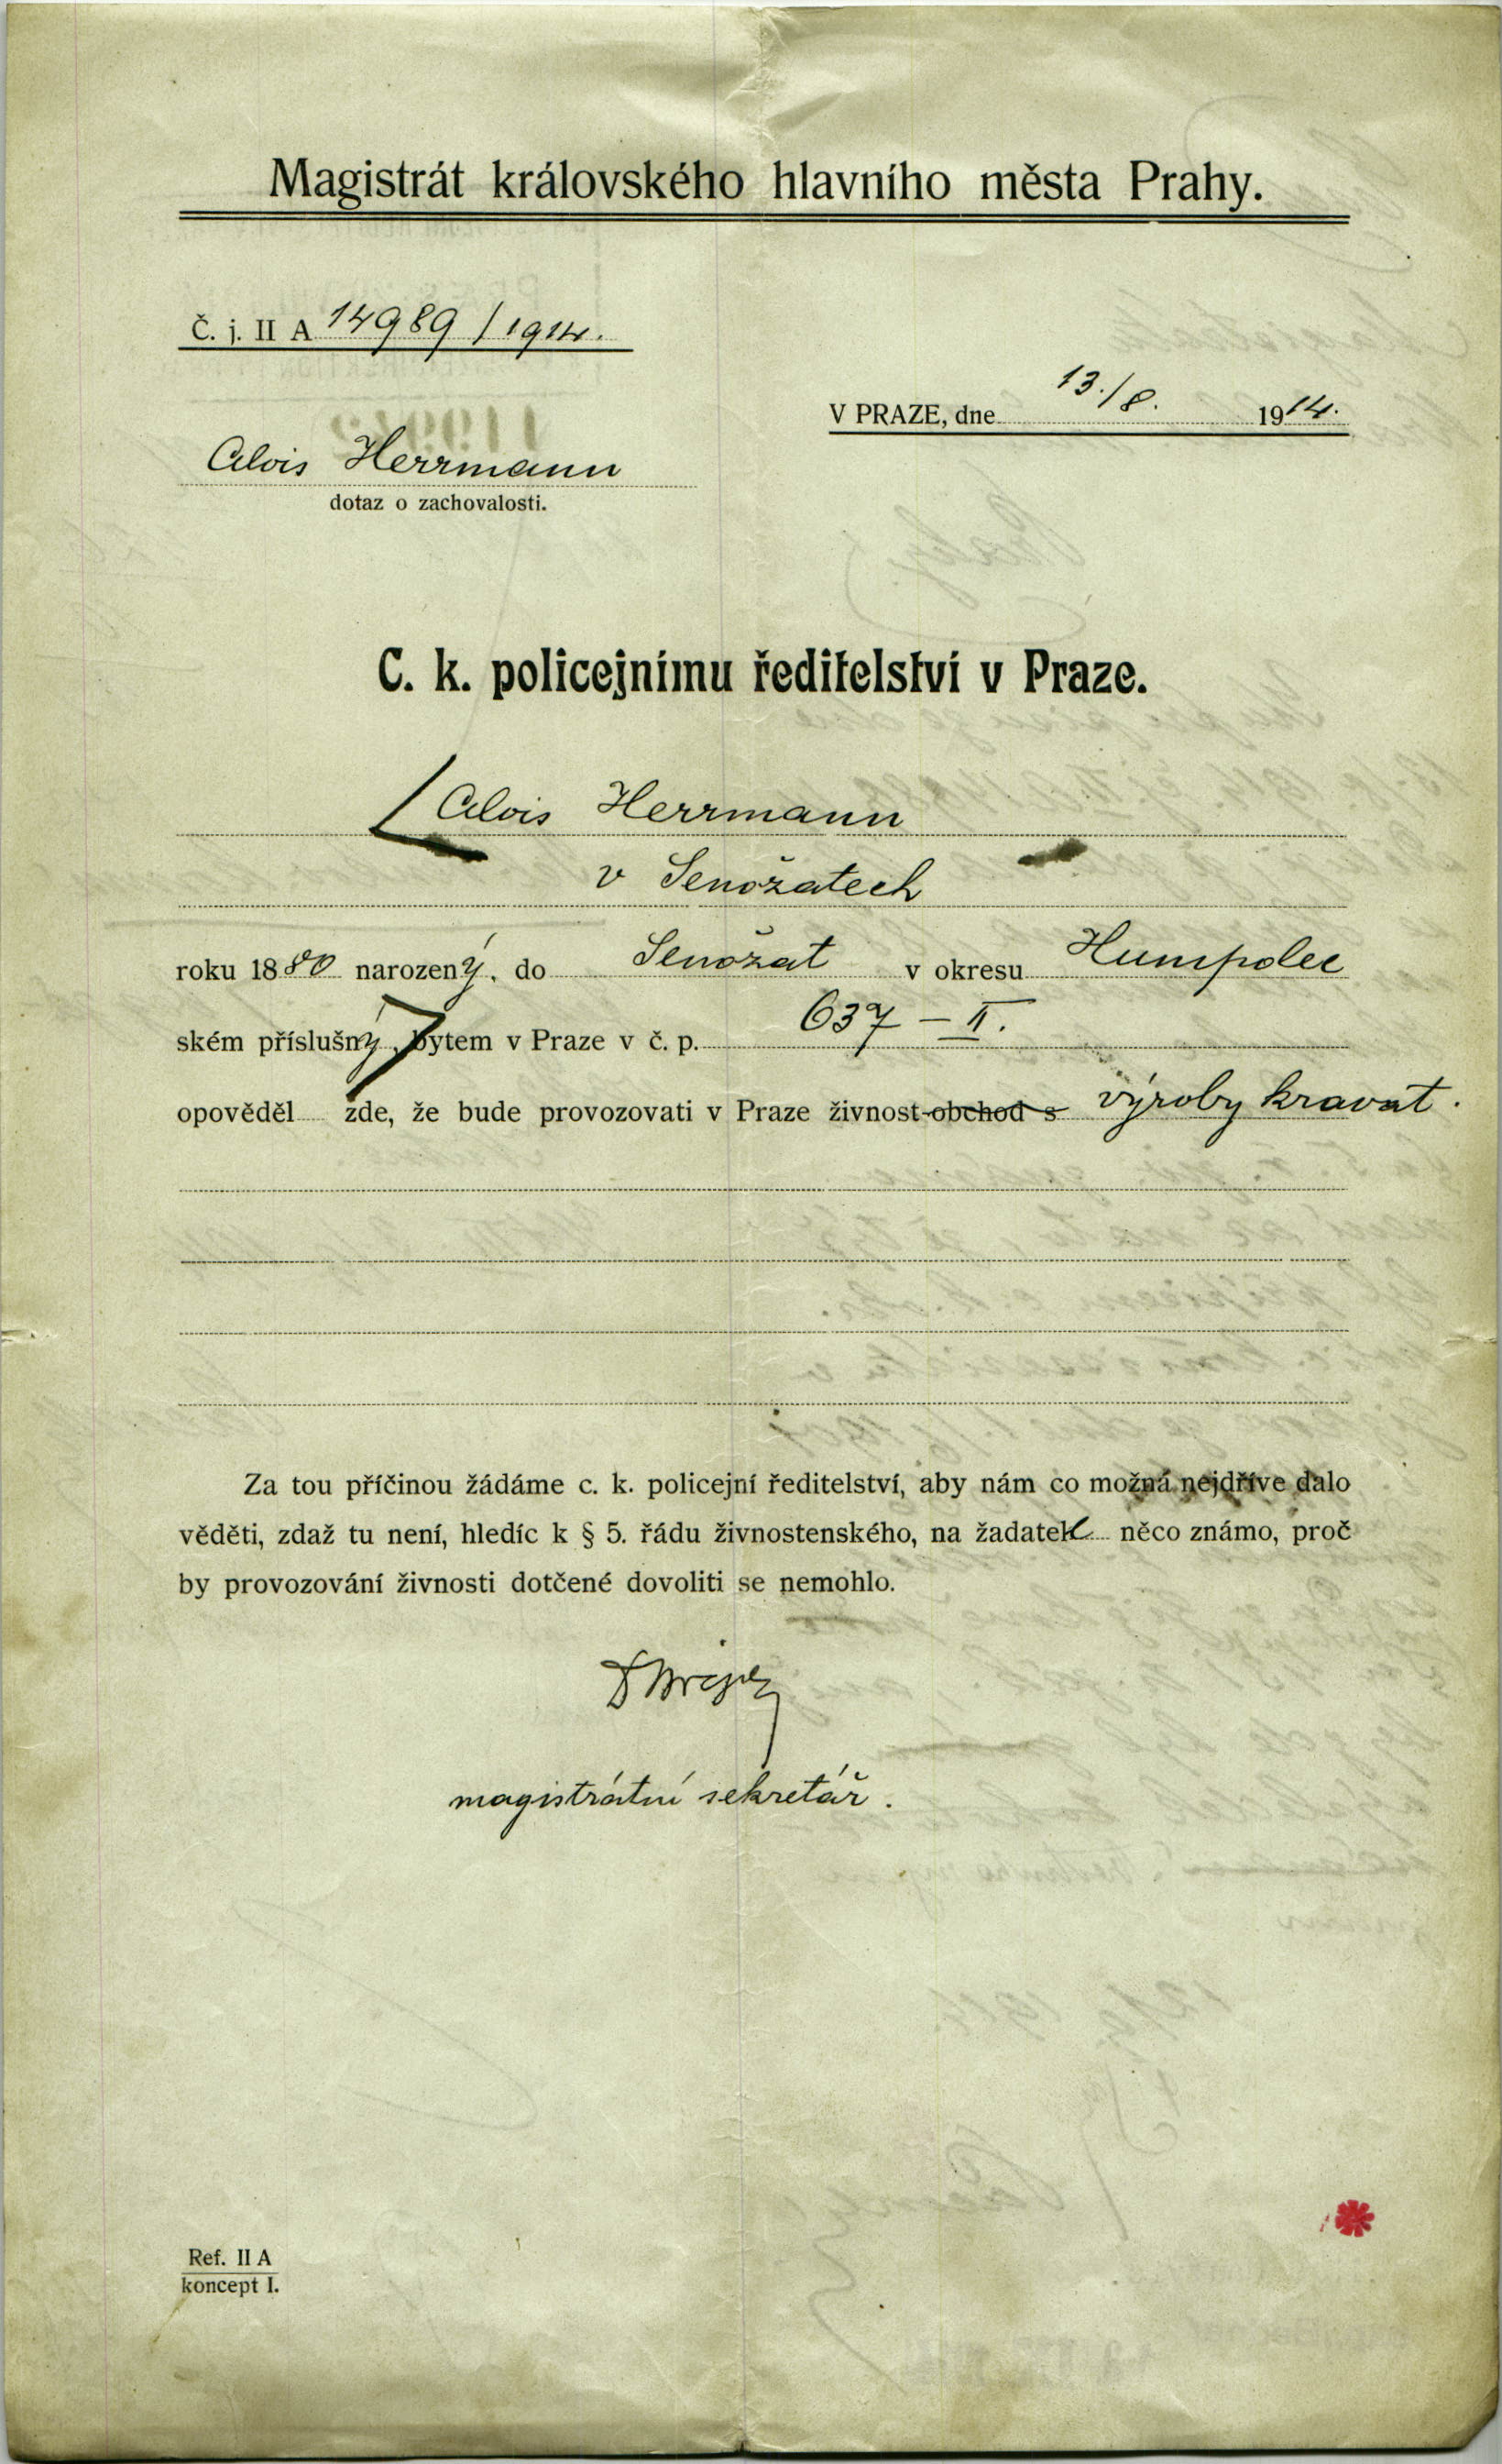 Magistrát královského hlavního města Prahy.
Č. j. II A 14989/1914.
V PRAZE, dne 13./8. 1914.
Alois Herrmann
dotaz o zachovalosti.
C. k. policejnímu ředitelství v Praze.
Alois Herrmann
v Senožatech
roku 1880 narozený, do Senožat v okresu Humpolec
ském příslušný, bytem v Praze v č. p. 637 – II.
opověděl zde, že bude provozovati v Praze živnost obchod s výroby kravat.
Za tou příčinou žádáme c. k. policejní ředitelství, aby nám co možná nejdříve dalo
věděti, zdaž tu není, hledíc k § 5. řádu živnostenského, na žadatele něco známo, proč
by provozování živnosti dotčené dovoliti se nemohlo.
magistrátní sekretář.
Ref. II A
koncept I.